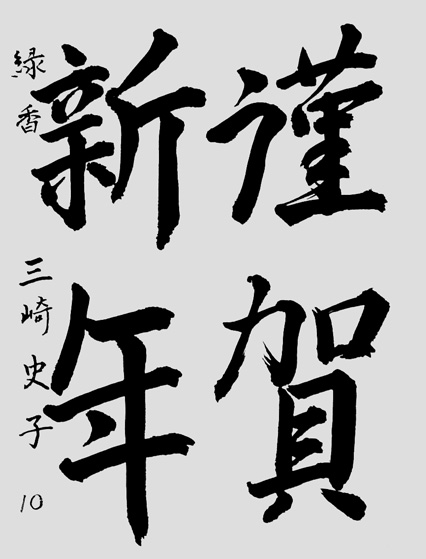 謹賀
新年
緑香 三崎史子 10